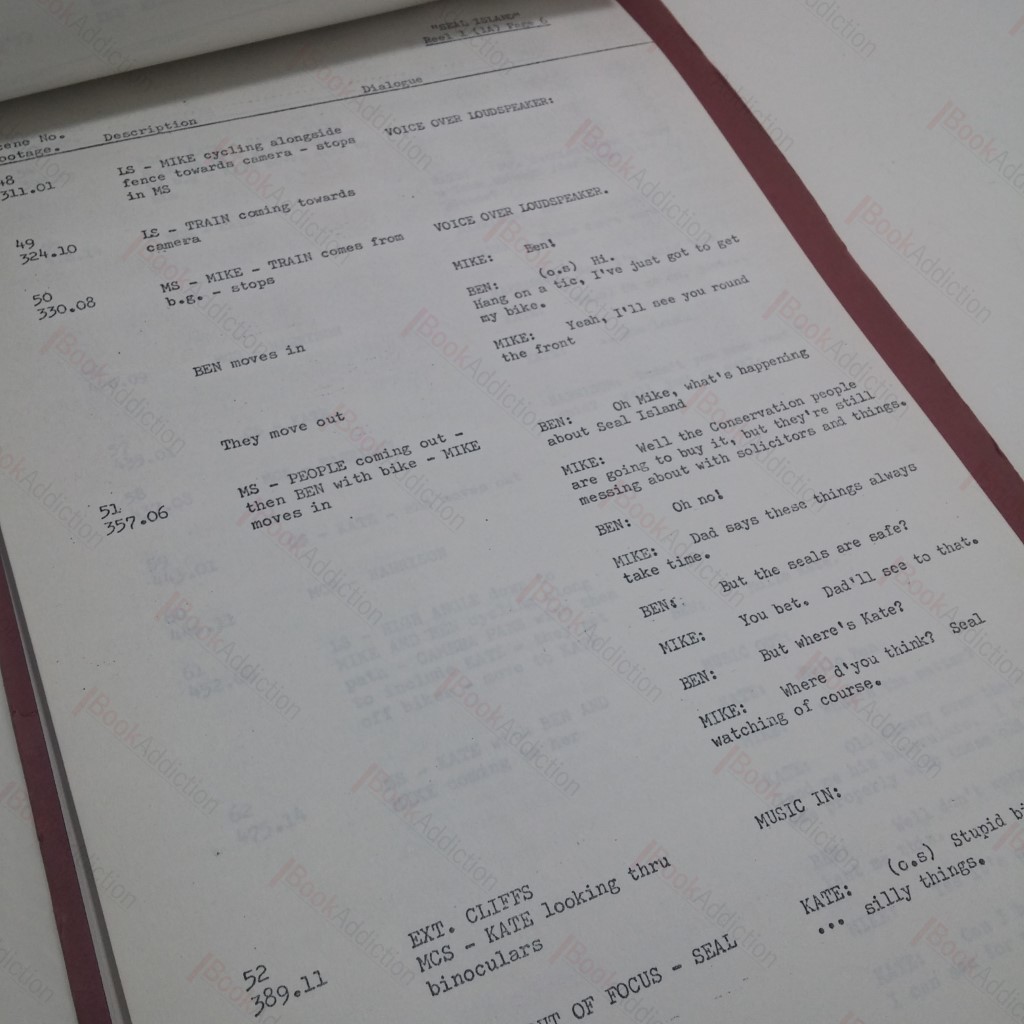 "SEAL ISLAND"
Reel 1 (1A) Page 6
cene No. Description Dialogue
ootage.
48 LS - MIKE cycling alongside VOICE OVER LOUDSPEAKER:
311.01 fence towards camera - stops
in MS
49 LS - TRAIN coming towards
324.10 camera
50 MS - MIKE - TRAIN comes from VOICE OVER LOUDSPEAKER.
330.08 b.g. - stops
MIKE: Ben!
BEN: (o.s) Hi.
Hang on a tic, I've just got to get
my bike.
MIKE: Yeah, I'll see you round
the front
BEN moves in
They move out
51 MS - PEOPLE coming out -
357.06 then BEN with bike - MIKE
moves in
BEN: Oh Mike, what's happening
about Seal Island
MIKE: Well the Conservation people
are going to buy it, but they're still
messing about with solicitors and things.
BEN: Oh no!
MIKE: Dad says these things always
take time.
BEN: But the seals are safe?
MIKE: You bet. Dad'll see to that.
BEN: But where's Kate?
MIKE: Where d'you think? Seal
watching of course.
MUSIC IN:
EXT. CLIFFS
52 MCS - KATE looking thru
389.11 binoculars
KATE: (o.s) Stupid bi
... silly things.
UT OF FOCUS - SEAL